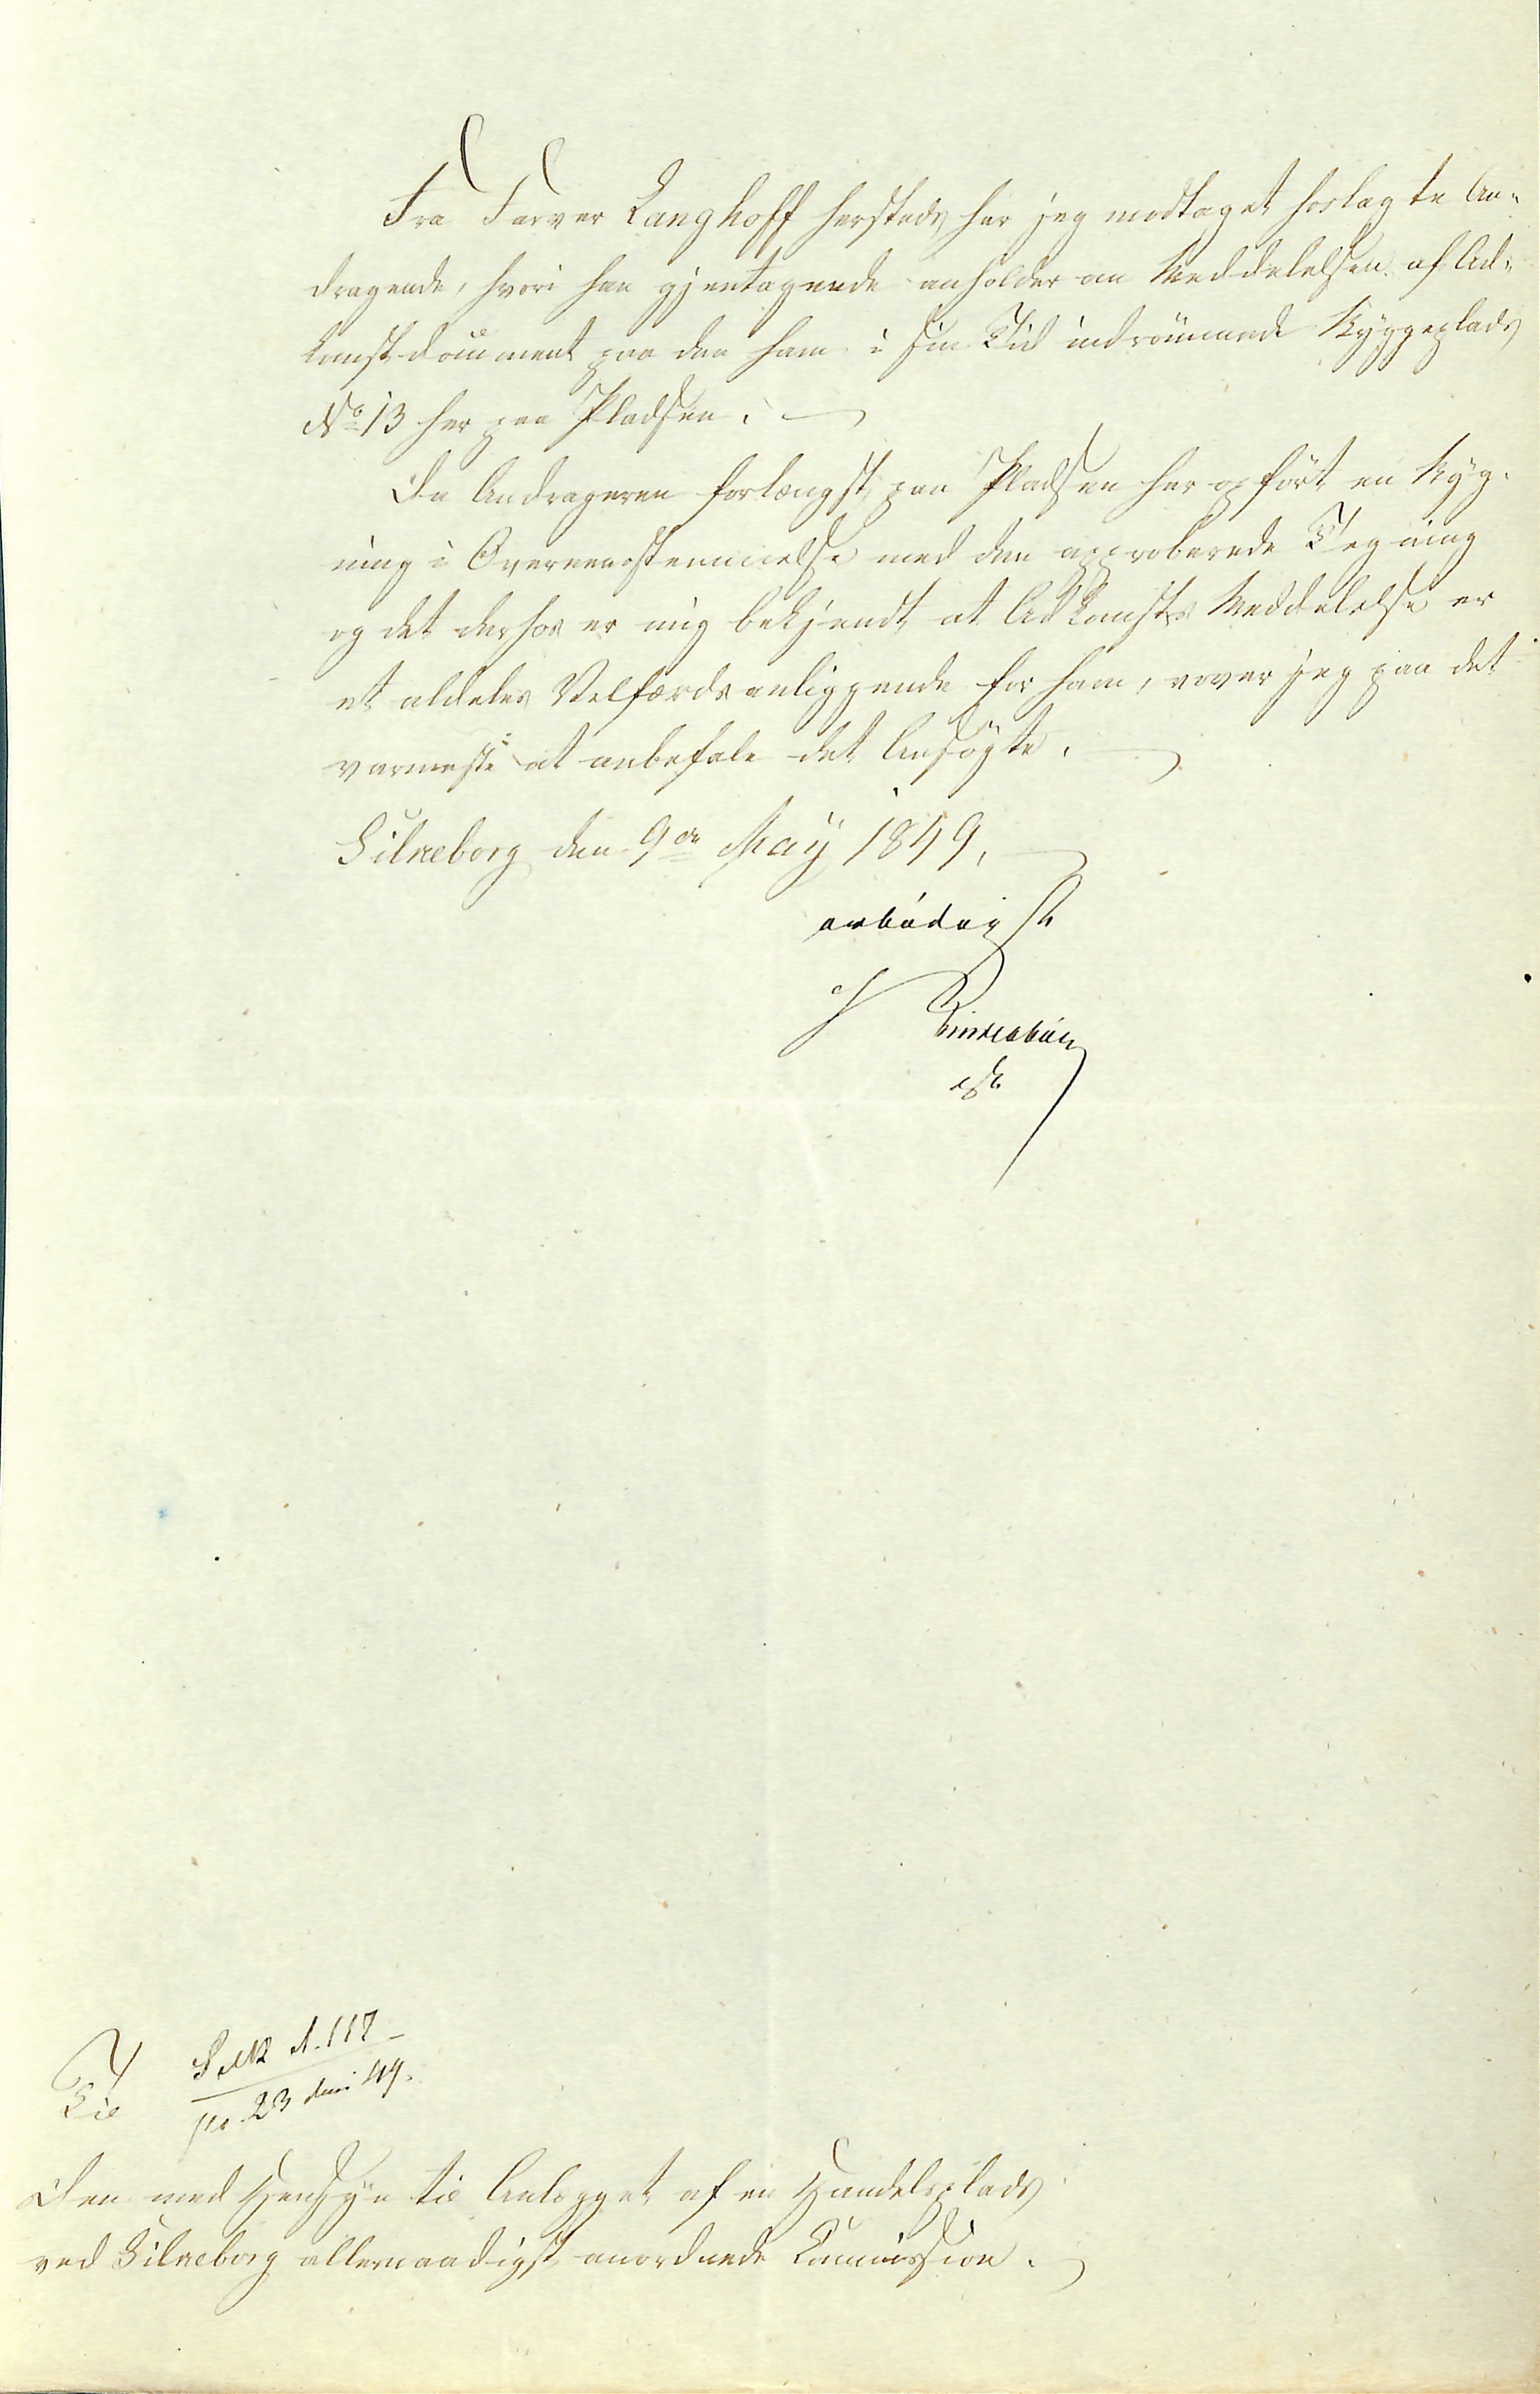 Fra Farver Langhoff hersteds har jeg modtaget hoslagte An-
dragende, hvori han gjentagende anholder om Meddelelsen af Ad-
komstdocument paa den ham i sin Tid indrömmede Byggeplads
No 13 her paa Pladsen.
Da Andrageren forlængst paa Pladsen har opført en Byg-
ning i Overeensstemmelse med den approberede Tegning
og det derhos er mig bekjendt, at Adkomsts Meddelelse er
et aldeles Velfærdsanliggende for ham, vover jeg paa det
varmeste at anbefale det Ansøgte.
Silkeborg den 9de May 1849.
ærbødigst
Bindesbøll
Til
S A 117
23 Juni 49.
Den med Hensyn til Anlægget af en Handelsplads
ved Silkeborg allernaadigst anordnede Commission.